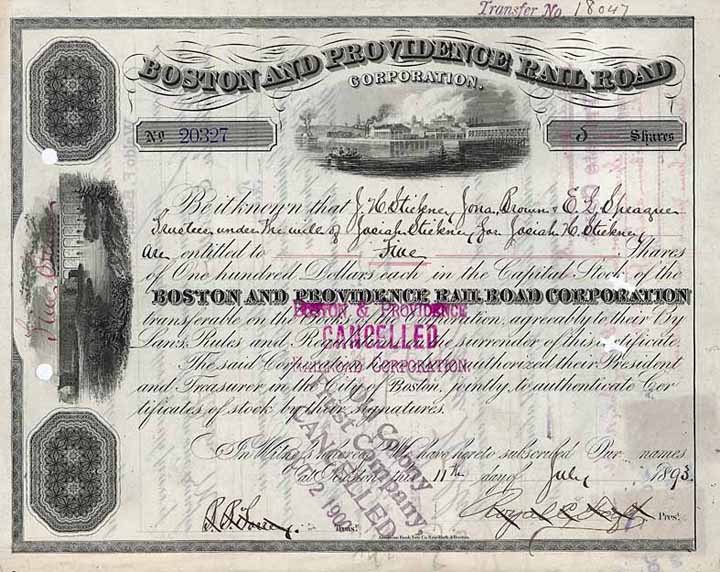 Transfer No. 18047
BOSTON AND PROVIDENCE RAIL ROAD
CORPORATION.
No 20327
5 Shares
Be it known that J. H. Stickney, Jona. Brown & E. L. Sprague
Trustees under the will of Josiah Stickney for Josiah H. Stickney
are entitled to Five Shares
of One hundred Dollars each in the Capital Stock of the
BOSTON AND PROVIDENCE RAIL ROAD CORPORATION
transferable on the Corporation, agreeably to their By
Laws, Rules and the surrender of this certificate.
The said authorized their President
and Treasurer, in the City of Boston, jointly, to authenticate Cer
tificates of stock by their signatures.
In Witness whereof We have hereto subscribed Our names
at Boston this 11th day of July 1893
Treas!
Pres!
BOSTON & PROVIDENCE
CANCELLED
RAILROAD CORPORATION.
Old Colony
Trust Company
CANCELLED